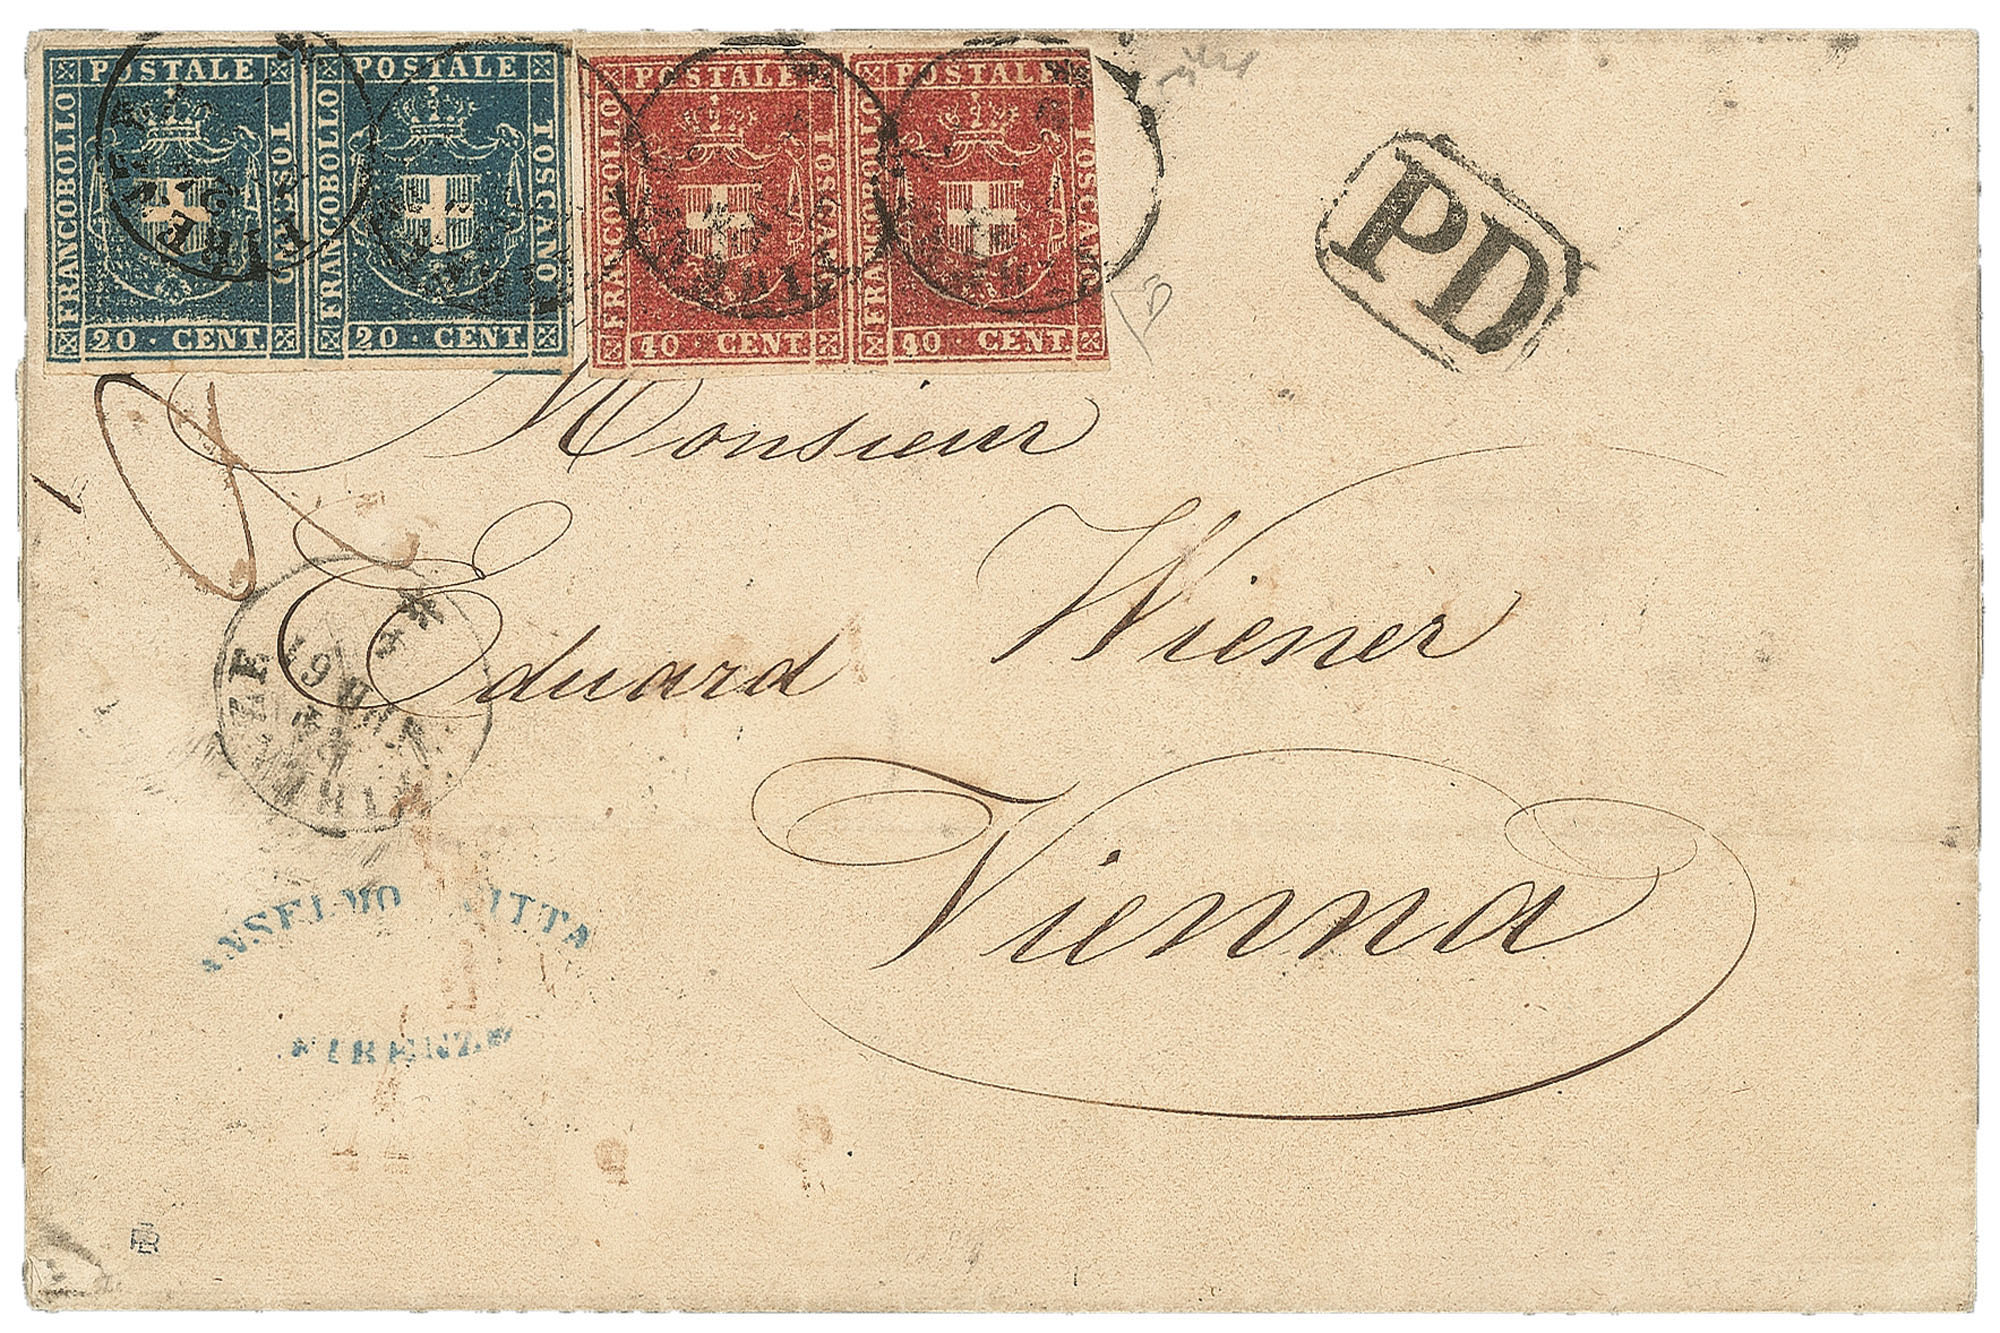 FRANCOBOLLO POSTALE TOSCANO
20 · CENT.
FRANCOBOLLO POSTALE TOSCANO
20 · CENT.
FRANCOBOLLO POSTALE TOSCANO
40 · CENT.
FRANCOBOLLO POSTALE TOSCANO
40 · CENT.
PD
Monsieur
Eduard Wiener
Vienna
FIRENZE
ANSELMO VITTA
FIRENZE